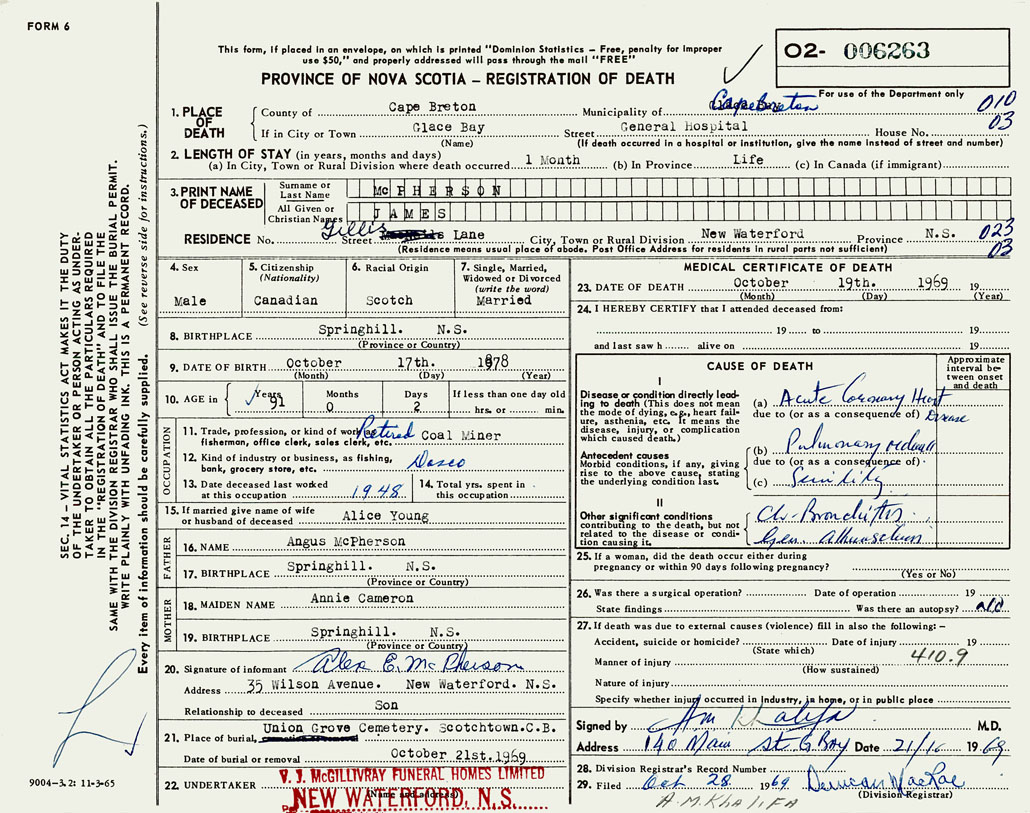 FORM 6
This form, if placed in an envelope, on which is printed "Dominion Statistics – Free, penalty for improper
use $50," and properly addressed will pass through the mail "FREE"
PROVINCE OF NOVA SCOTIA – REGISTRATION OF DEATH
O2- 006263
For use of the Department only
1. PLACE OF DEATH
County of Cape Breton Municipality of Cape Breton 010
If in City or Town Glace Bay Street General Hospital House No. 03
(Name) (If death occurred in a hospital or institution, give the name instead of street and number)
2. LENGTH OF STAY (in years, months and days)
(a) In City, Town or Rural Division where death occurred 1 Month (b) In Province Life (c) In Canada (if immigrant)
3. PRINT NAME OF DECEASED
Surname or Last Name McPHERSON
All Given or Christian Names JAMES
RESIDENCE No. Street Gillis Lane City, Town or Rural Division New Waterford Province N.S. 023
(Residence means usual place of abode. Post Office Address for residents in rural parts not sufficient) 03
4. Sex
Male
5. Citizenship
(Nationality)
Canadian
6. Racial Origin
Scotch
7. Single, Married,
Widowed or Divorced
(write the word)
Married
8. BIRTHPLACE Springhill. N.S.
(Province or Country)
9. DATE OF BIRTH October 17th. 1878
(Month) (Day) (Year)
10. AGE in Years 91 Months 0 Days 2 If less than one day old
hrs. or min.
OCCUPATION
11. Trade, profession, or kind of work as
fisherman, office clerk, sales clerk, etc. Retired Coal Miner
12. Kind of industry or business, as fishing,
bank, grocery store, etc. Dosco
13. Date deceased last worked
at this occupation 1948
14. Total yrs. spent in
this occupation
15. If married give name of wife
or husband of deceased Alice Young
FATHER
16. NAME Angus McPherson
17. BIRTHPLACE Springhill. N.S.
(Province or Country)
MOTHER
18. MAIDEN NAME Annie Cameron
19. BIRTHPLACE Springhill. N.S.
(Province or Country)
20. Signature of informant Alex E. McPherson
Address 35 Wilson Avenue. New Waterford. N.S.
Relationship to deceased Son
21. Place of burial, Union Grove Cemetery. Scotchtown.C.B.
Date of burial or removal October 21st.1969
22. UNDERTAKER V. J. McGILLIVRAY FUNERAL HOMES LIMITED
(Name and address)
NEW WATERFORD, N.S.
MEDICAL CERTIFICATE OF DEATH
23. DATE OF DEATH October 19th. 1969 19
(Month) (Day) (Year)
24. I HEREBY CERTIFY that I attended deceased from:
19 to 19
and last saw h alive on 19
CAUSE OF DEATH
Approximate
interval be-
tween onset
and death
I
Disease or condition directly lead-
ing to death (This does not mean
the mode of dying, e.g., heart fail-
ure, asthenia, etc. It means the
disease, injury, or complication
which caused death.)
(a) Acute Coronary Heart
due to (or as a consequence of) Disease
Antecedent causes
Morbid conditions, if any, giving
rise to the above cause, stating
the underlying condition last.
(b) Pulmonary
due to (or as a consequence of)
(c) Senility
II
Other significant conditions
contributing to the death, but not
related to the disease or condi-
tion causing it.
Ch. Bronchitis
Gen.
25. If a woman, did the death occur either during
pregnancy or within 90 days following pregnancy?
(Yes or No)
26. Was there a surgical operation? Date of operation 19
State findings Was there an autopsy?
27. If death was due to external causes (violence) fill in also the following: –
Accident, suicide or homicide? Date of injury 19
(State which) 410.9
Manner of injury
(How sustained)
Nature of injury
Specify whether injury occurred in industry, in home, or in public place
Signed by Am Khalifa M.D.
Address 140 Main St. G Bay Date 21/10 1969
28. Division Registrar's Record Number
29. Filed Oct 28 1969 Duncan MacRae
(Division Registrar)
A.M.KHALIFA
SEC. 14 – VITAL STATISTICS ACT MAKES IT THE DUTY
OF THE UNDERTAKER OR PERSON ACTING AS UNDER-
TAKER TO OBTAIN ALL THE PARTICULARS REQUIRED
IN THE "REGISTRATION OF DEATH" AND TO FILE THE
SAME WITH THE DIVISION REGISTRAR WHO SHALL ISSUE THE BURIAL PERMIT.
WRITE PLAINLY WITH UNFADING INK. THIS IS A PERMANENT RECORD.
Every item of information should be carefully supplied. (See reverse side for instructions.)
9004–3.2: 11-3-65